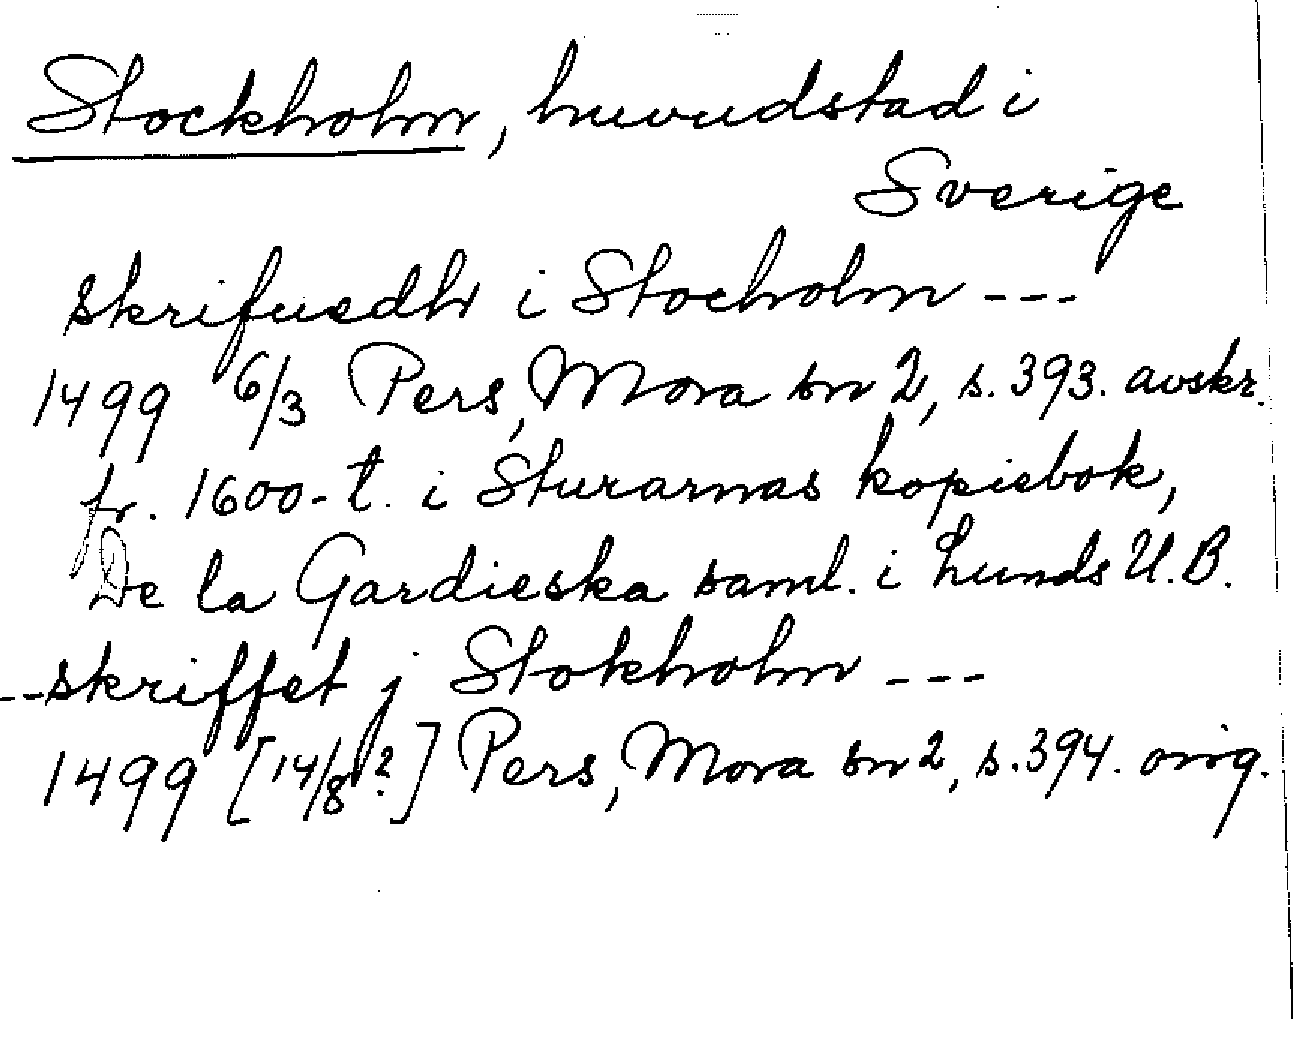 Stockholm, huvudstad i
Sverige
skrifuedh i Stocholm ---
1499 6/3 Pers, Mora sn 2, s. 393. avskr.
fr. 1600-t. i Sturarnas kopiebok,
De la Gardieska saml. i Lunds U.B.
--skriffet j Stokholm ---
1499 [14/8?] Pers, Mora sn 2, s. 394. orig.